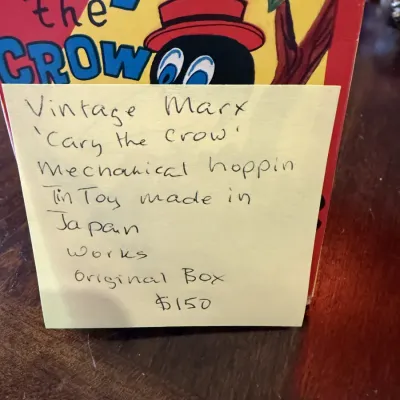 the
CROW
Vintage Marx
'Cary the Crow'
mechanical hoppin
Tin Toy made in
Japan
works
original Box
$150